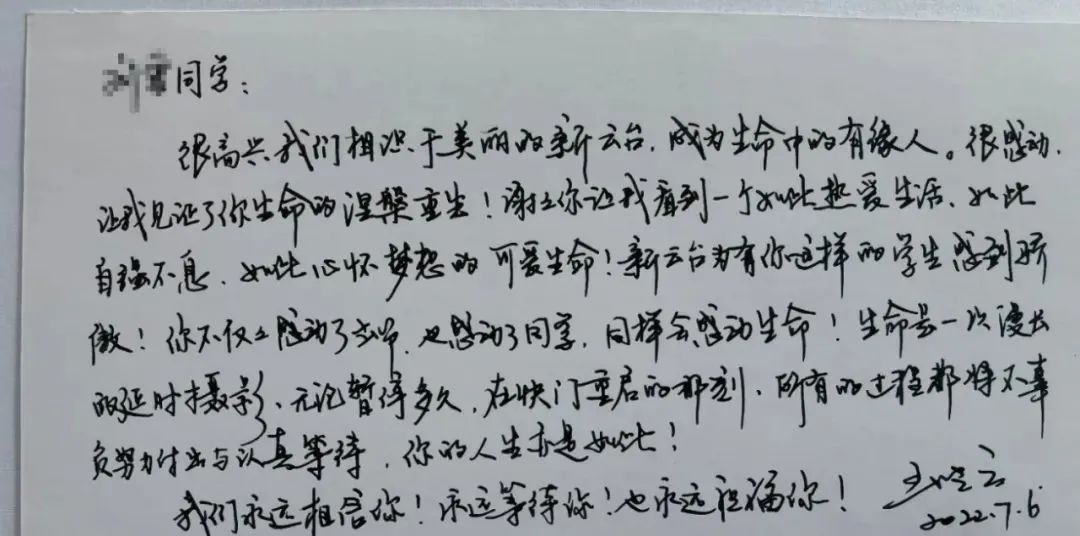 同学：
很高兴我们相识于美丽的新云台，成为生命中的有缘人。很感动，
让我见证了你生命的涅槃重生！谢谢你让我看到一个如此热爱生活、如此
自强不息、如此心怀梦想的可爱生命！新云台为有你这样的学生感到骄
傲！你不仅仅感动了老师，也感动了同学，同样会感动生命！生命是一次漫长
的延时摄影，无论暂停多久，在快门重启的那刻，所有的过程都将不辜
负努力付出与认真等待，你的人生亦是如此！
我们永远相信你！永远等待你！也永远祝福你！
2022.7.6